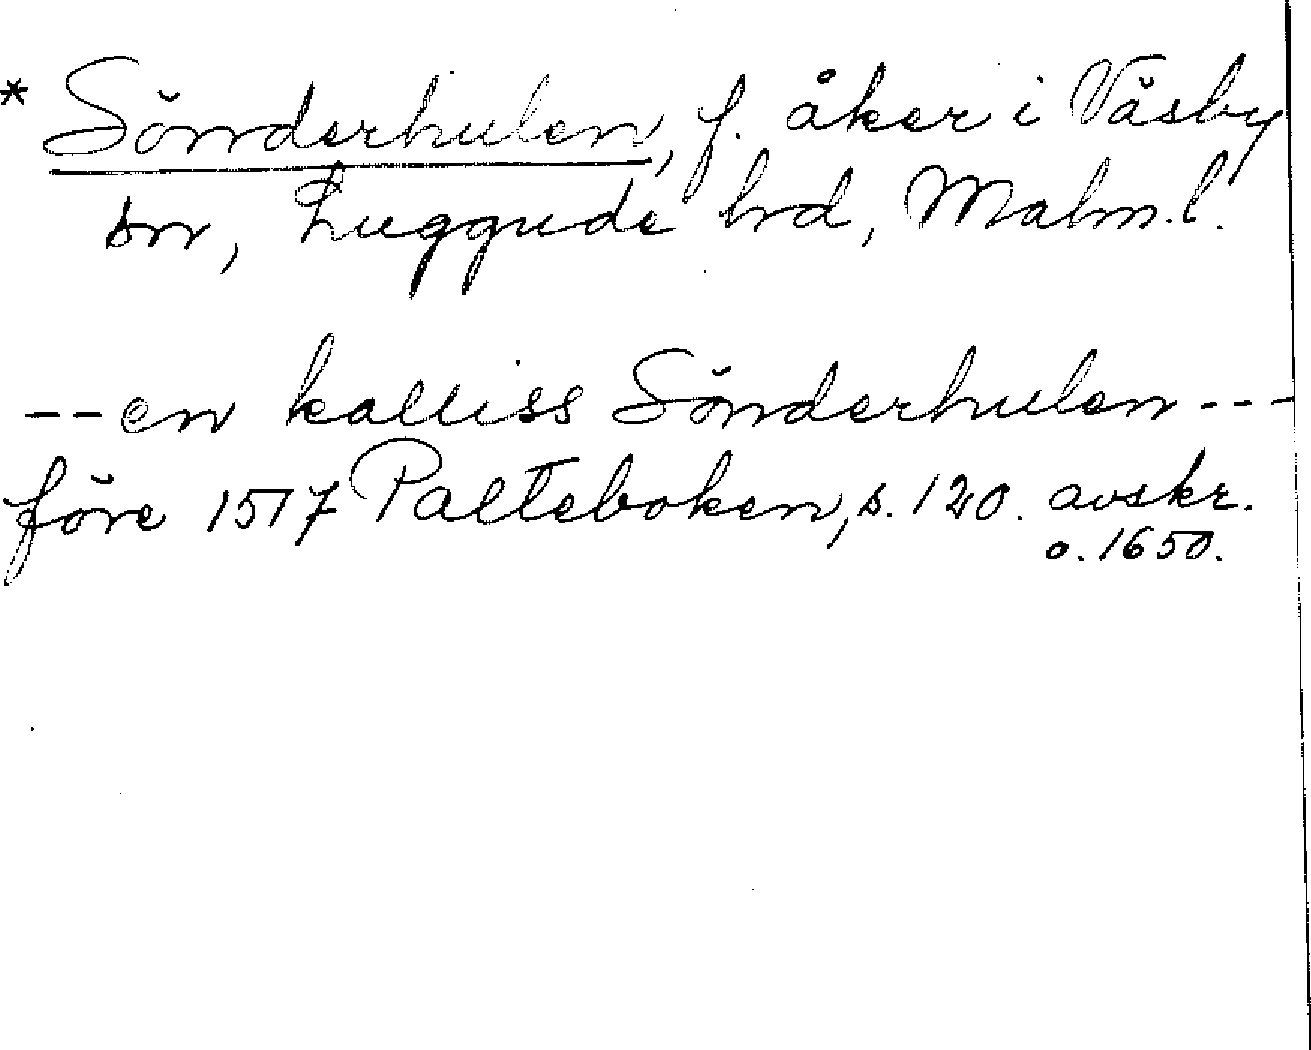 * Sönderhulen, f. åker i Väsby
sn, Luggude hd, Malm. l.
-- en kalliss Sönderhulen ---
före 1517 Palteboken, s. 120. avskr.
o. 1650.